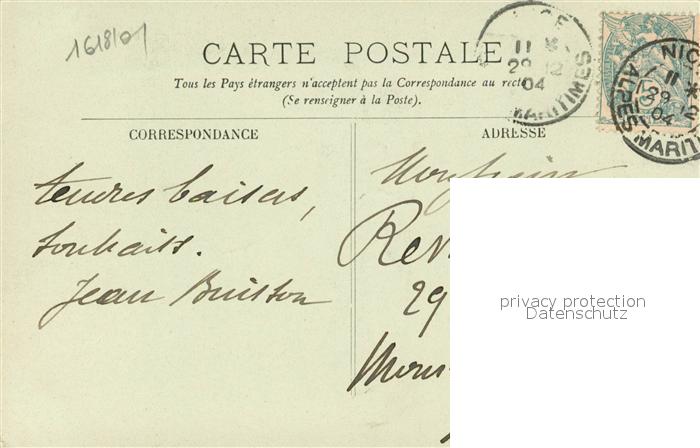 1618/01
CARTE POSTALE
Tous les Pays étrangers n'acceptent pas la Correspondance au recto
(Se renseigner à la Poste).
CORRESPONDANCE
ADRESSE
tendres baisers,
souhaits.
Jean Buisson
Monsieur
Rev
29
Mons
11
29 12
04
MARITIMES
NIC
11
29
04
ALPES MARIT
privacy protection
Datenschutz